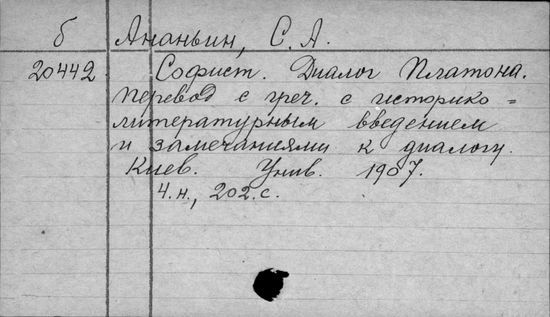 б Ананьин, С. А.
20442 Софист. Диалог Платона.
Перевод с греч. с историко=
литературным введением
и замечаниями к диалогу.
Киев. Унив. 1907.
4.н., 202.с.